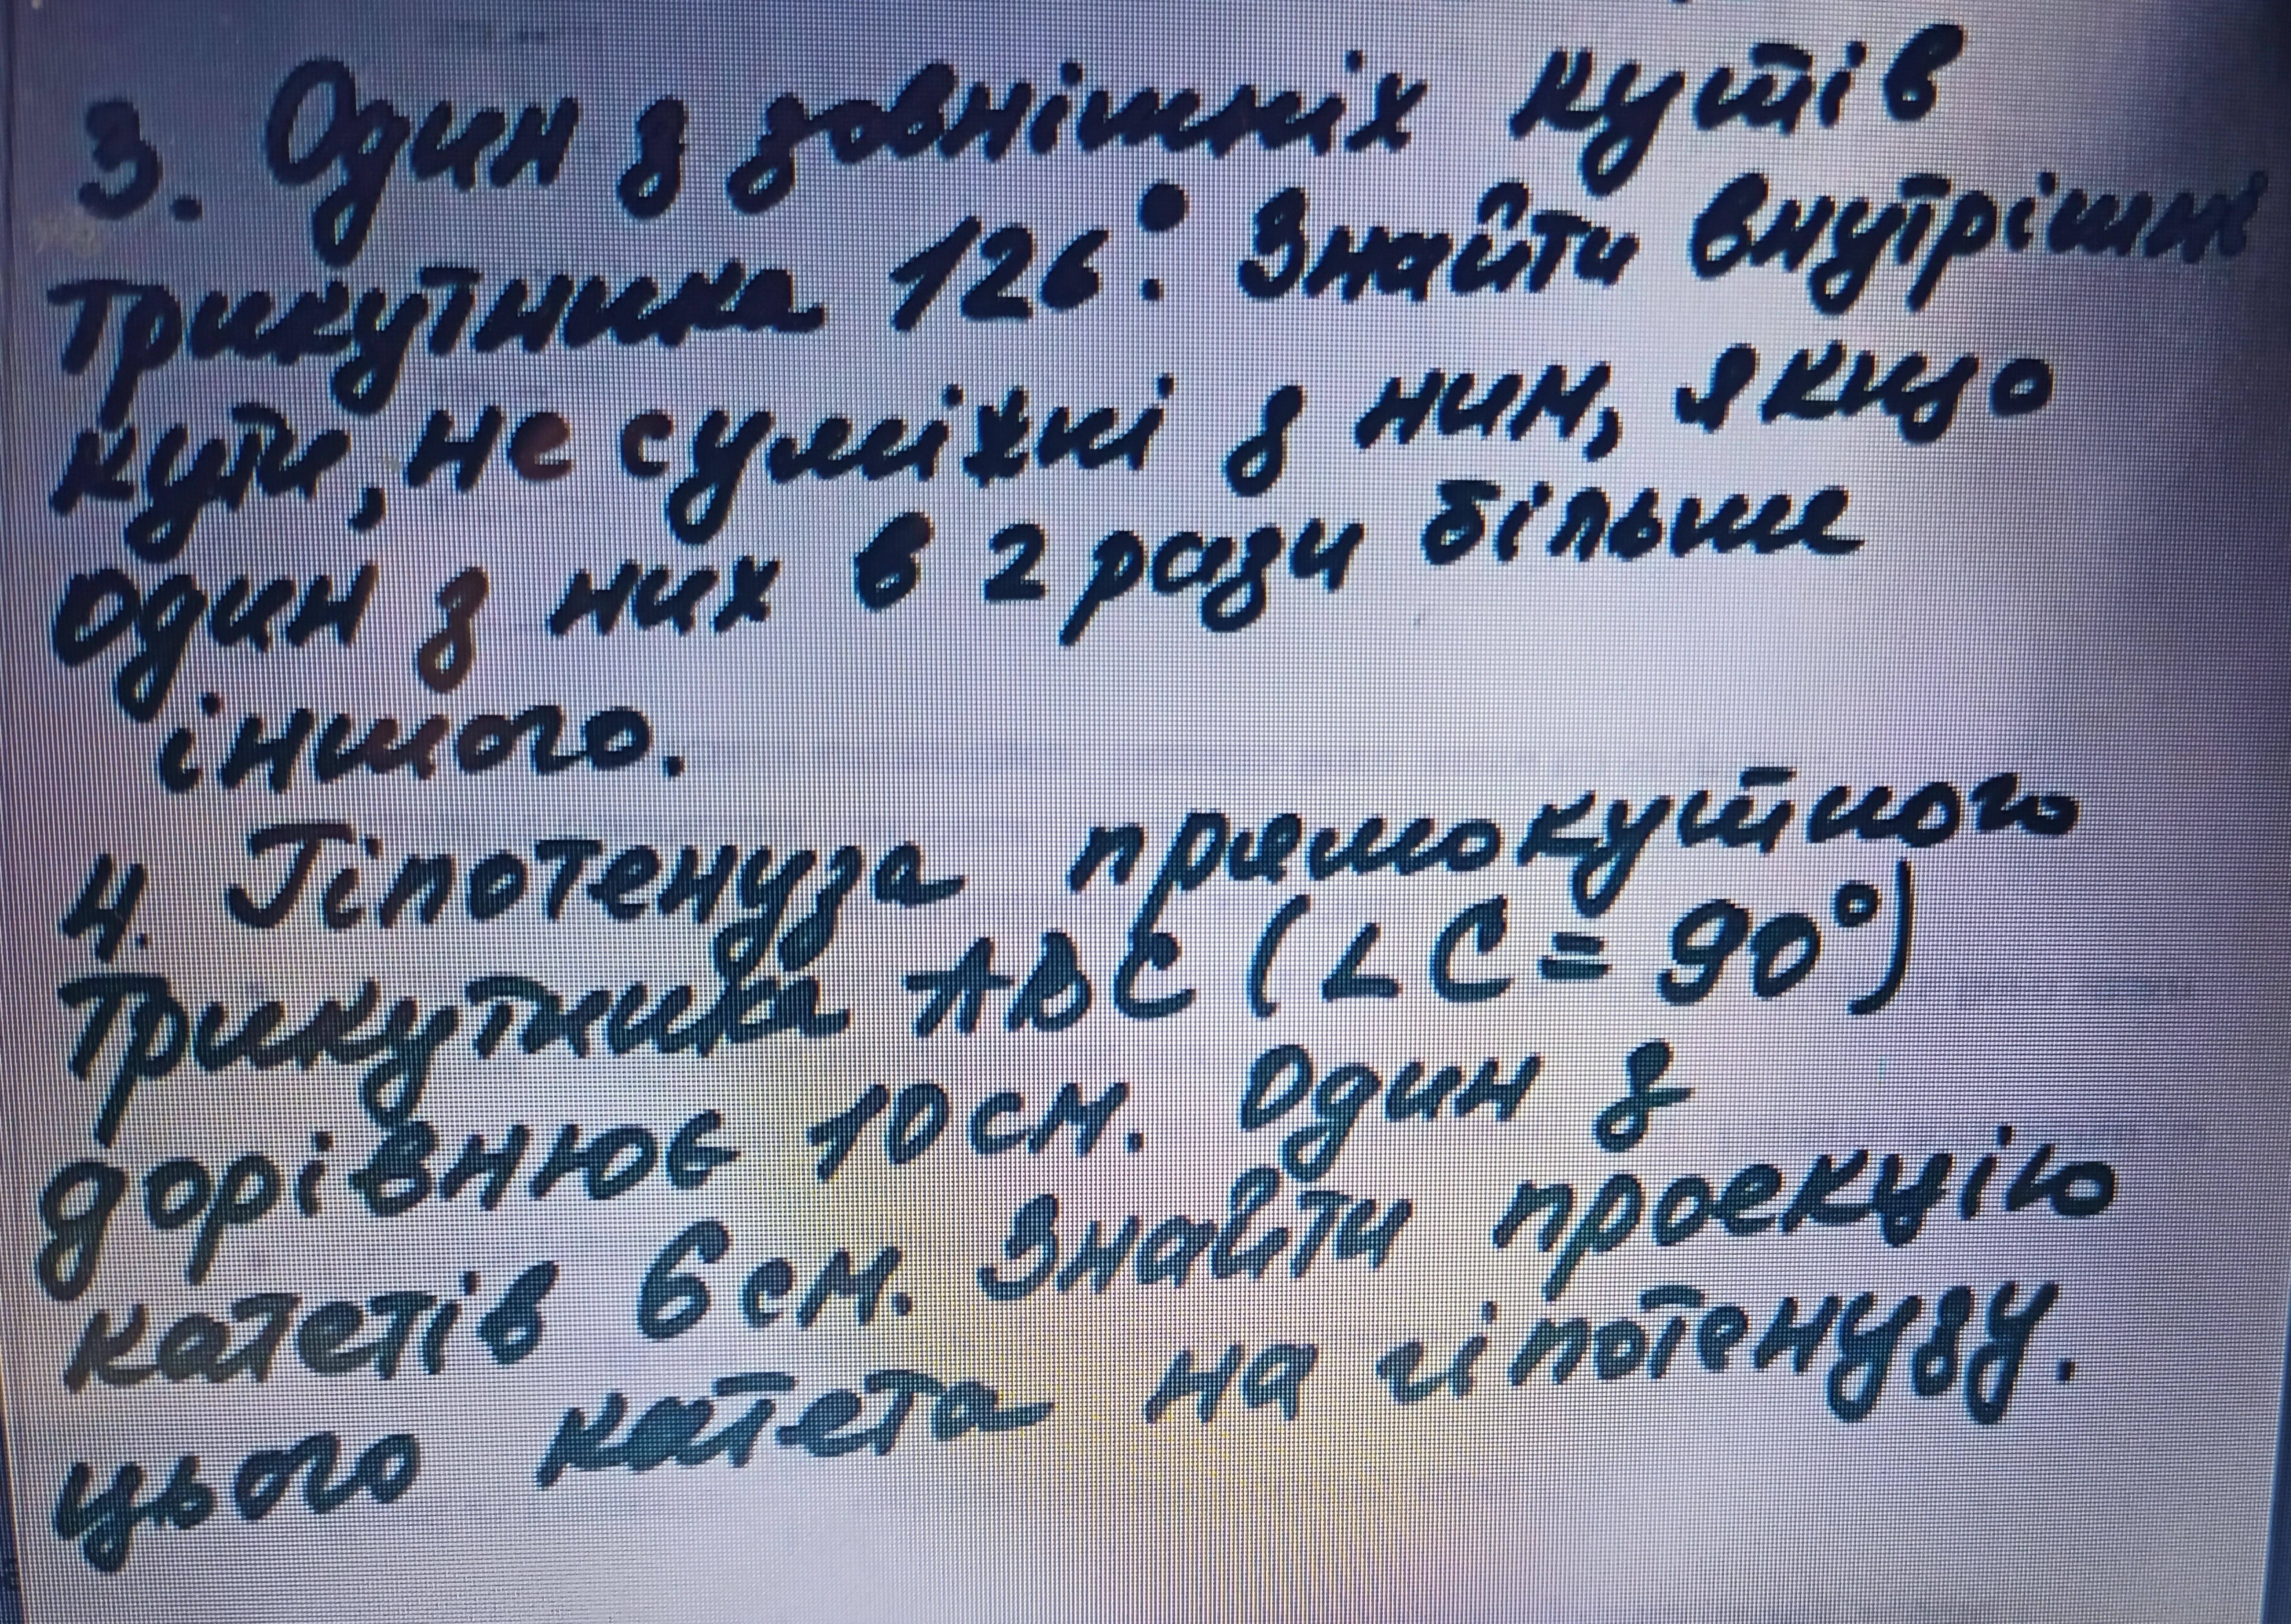 3. Один з зовнішніх кутів
трикутника 126°. Знайти внутрішні
кути, не суміжні з ним, якщо
один з них в 2 рази більше
іншого.
4. Гіпотенуза прямокутного
трикутника ABC (∠C = 90°)
дорівнює 10 см. Один з
катетів 6 см. Знайти проекцію
цього катета на гіпотенузу.